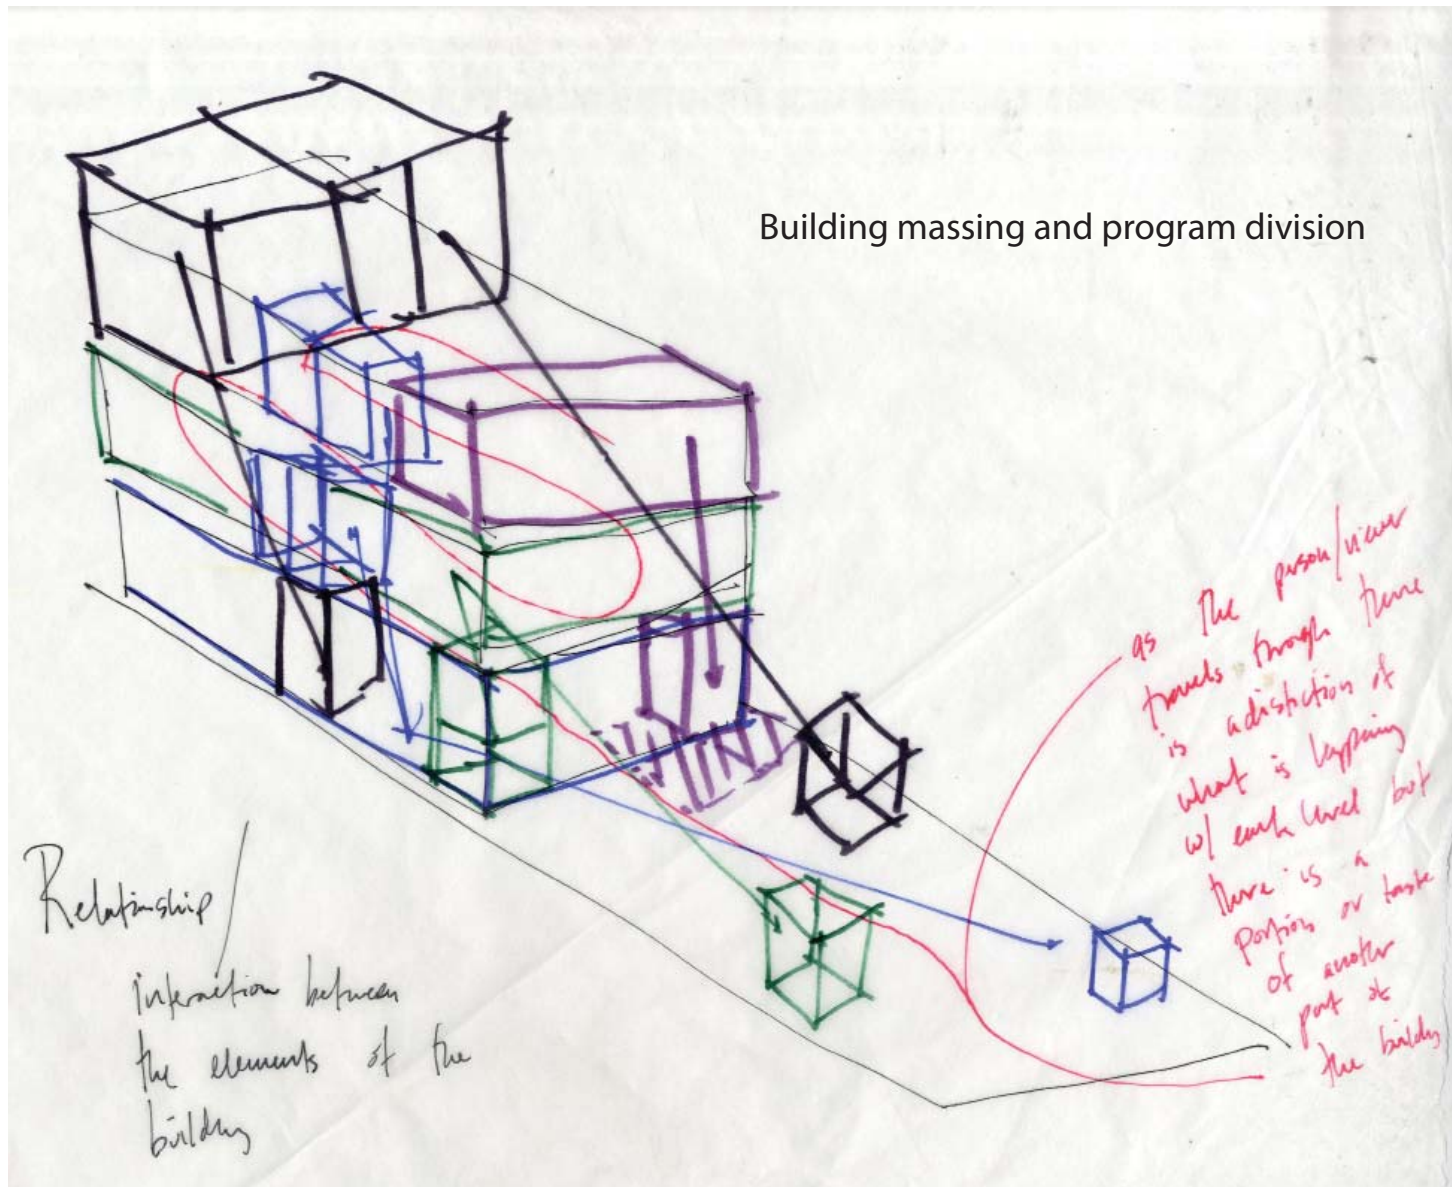 Building massing and program division
Relationship/
interaction between
the elements of the
building
as the person/viewer
travels through there
is a distiction of
what is happening
w/ each level but
there is a
portion or taste
of another
part of
the building